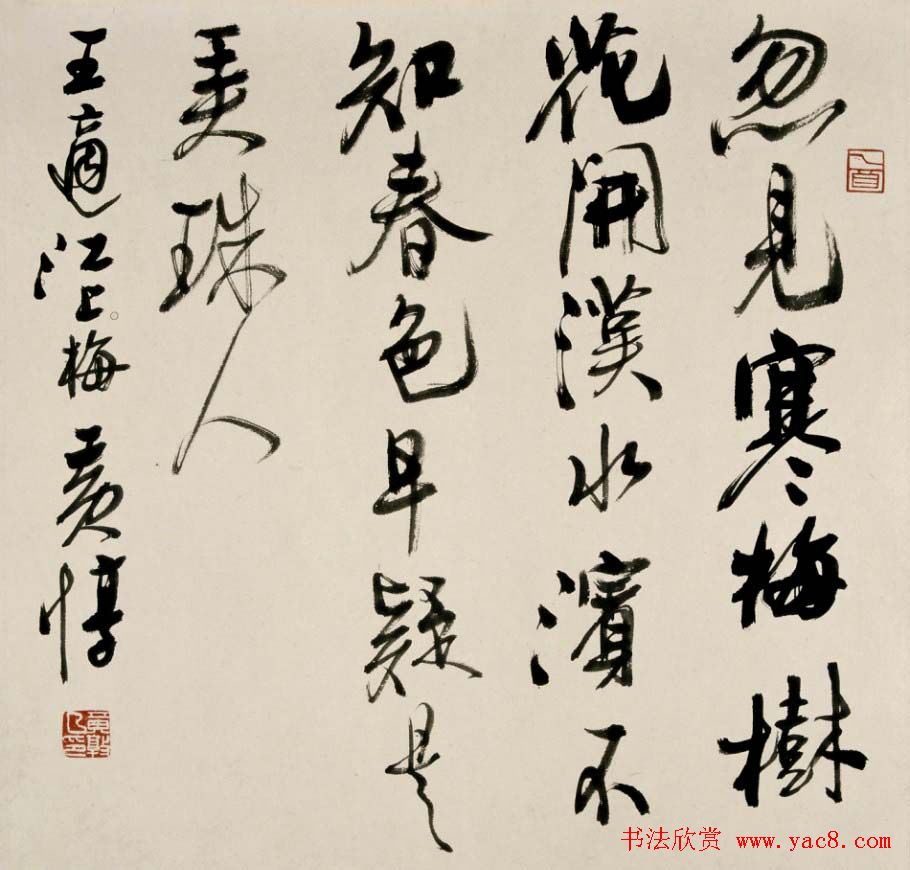 忽見寒梅樹
花開漢水濱不
知春色早疑是
弄珠人
王適江上梅 黃惇
书法欣赏 www.yac8.com